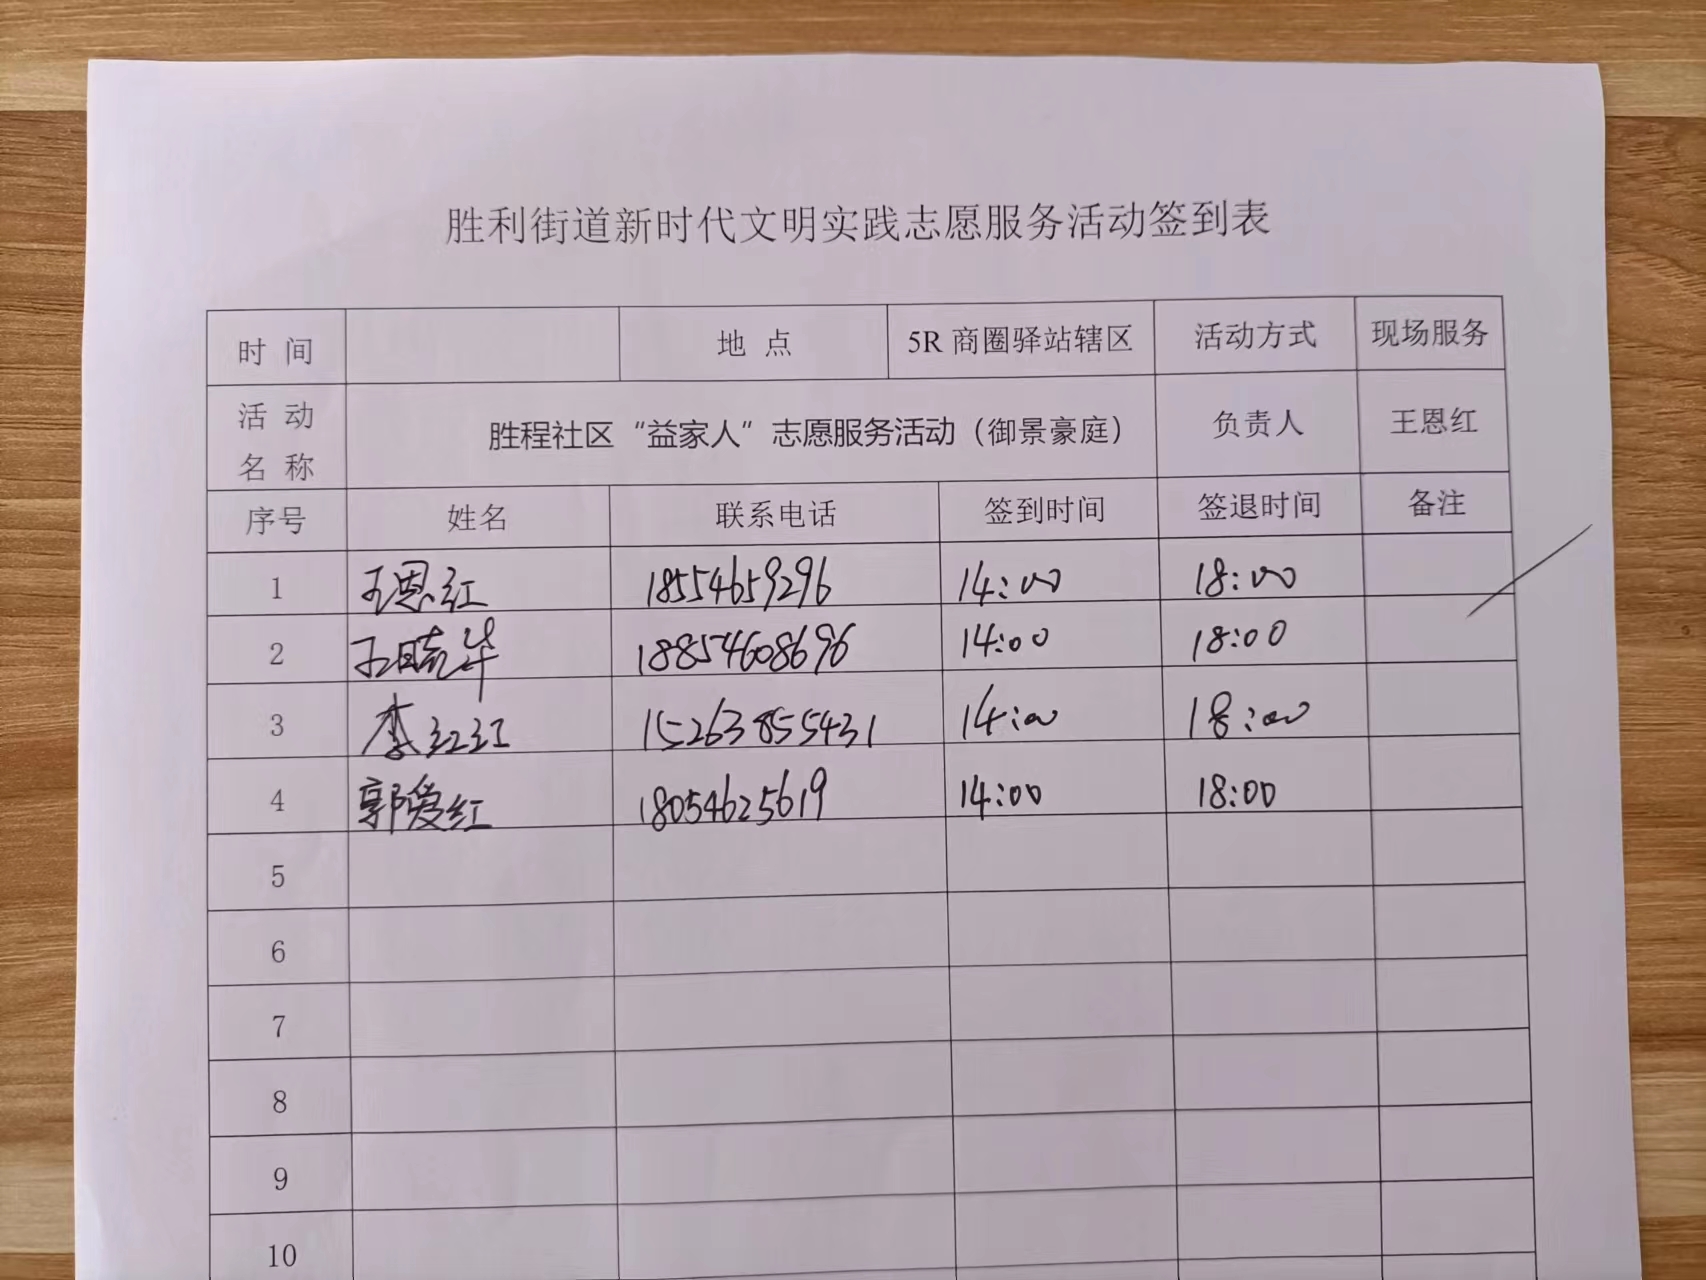 胜利街道新时代文明实践志愿服务活动签到表
时 间 地 点 5R 商圈驿站辖区 活动方式 现场服务
活 动
名 称 胜程社区“益家人”志愿服务活动（御景豪庭） 负责人 王恩红
序号 姓名 联系电话 签到时间 签退时间 备注
1 王恩红 18554659296 14:00 18:00
2 王晓华 18854608696 14:00 18:00
3 李红红 15263855431 14:00 18:00
4 郭爱红 18054625619 14:00 18:00
5
6
7
8
9
10